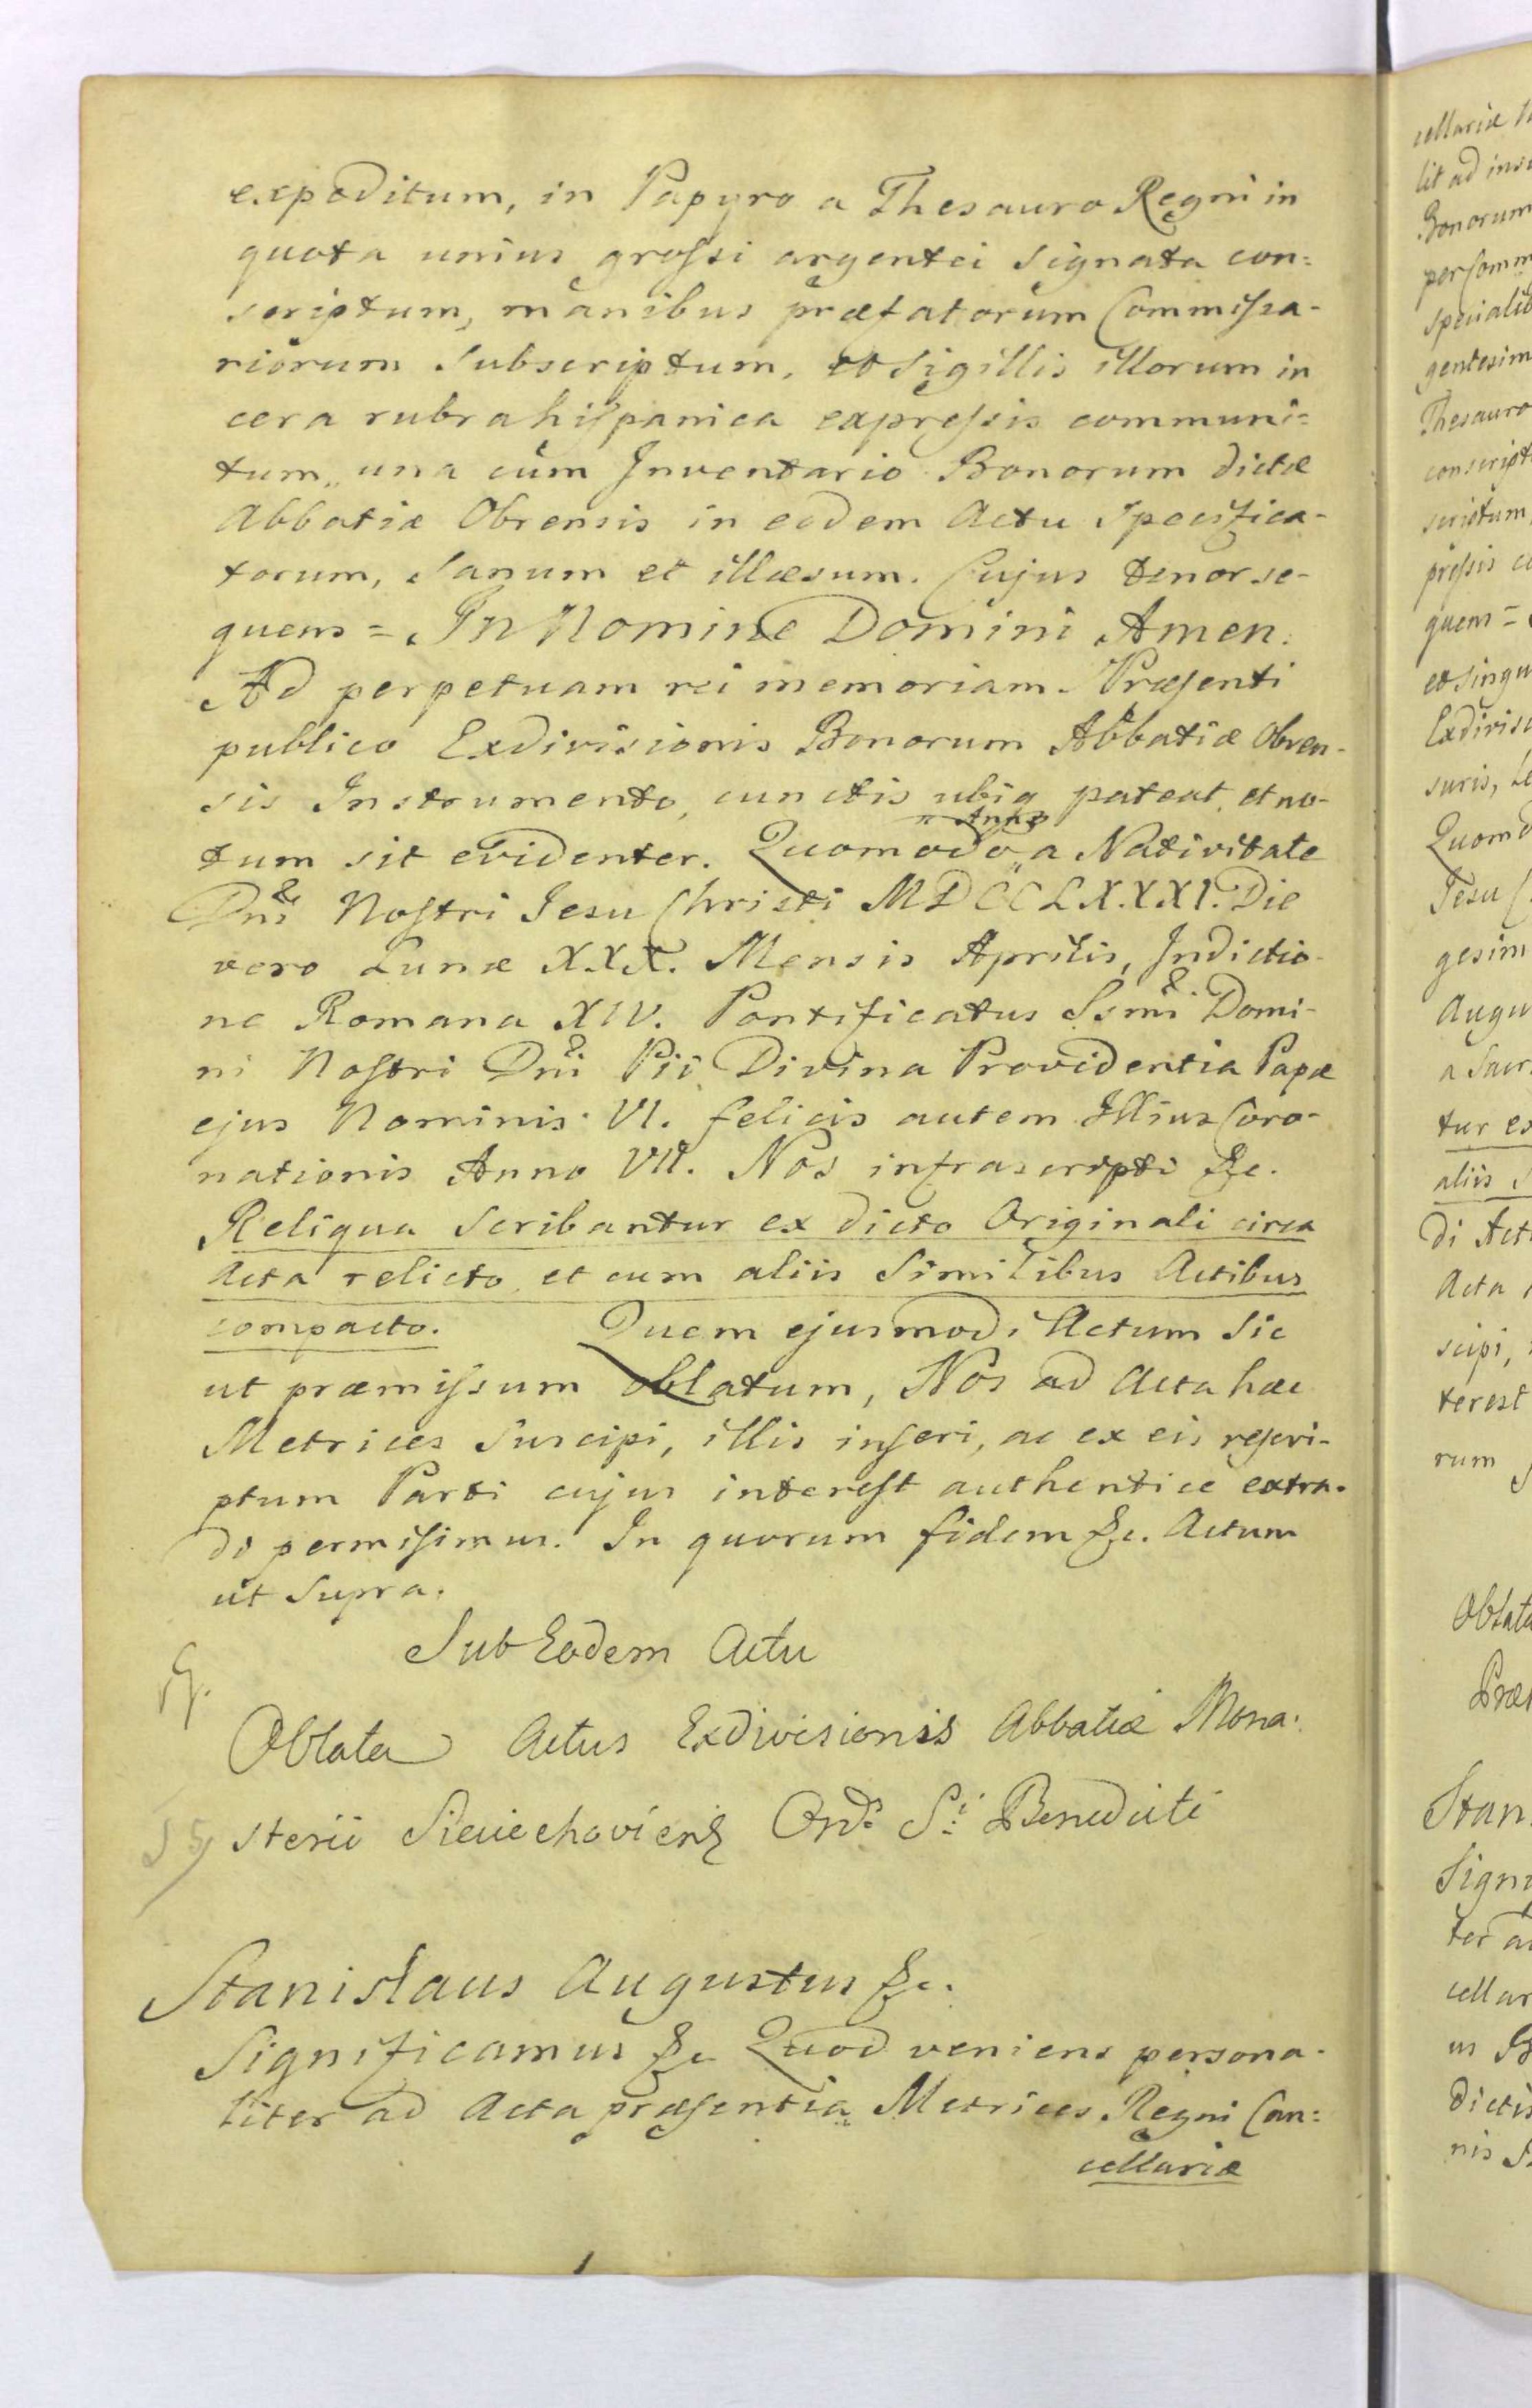 expeditum, in Papyro a Thesauro Regni in
quota unius grossi argentei Signata con:
scriptum, manibus præfatorum Commissa-
riorum Subscriptum, et Sigillis illorum in
cera rubra hispanica expressis communi-
tum, una cum Inventario Bonorum dictæ
Abbatiæ Obrensis in eodem Actu Specifica-
torum, Sanum et illæsum. Cujus tenor se-
quens = In Nomine Domini Amen.
Ad perpetuam rei memoriam. Præsenti
publico Exdivisionis Bonorum Abbatiæ Obren-
sis Instrumento, cunctis ubiq pateat, et no-
tum sit evidenter. Quomodo Anno a Nativitate
Dni Nostri Jesu Christi MDCCLXXXI. Die
vero Lunæ XXX. Mensis Aprilis, Indictio-
ne Romana XIV. Pontificatus Ssmi Domi-
ni Nostri Dni Pii Divina Providentia Papæ
ejus Nominis VI. felicis autem Illius Coro-
nationis Anno VII. Nos infrascripti &c.
Reliqua Scribantur ex dicto Originali circa
Acta relicto et cum aliis Similibus Actibus
compacto. Quem ejusmodi Actum Sic
ut præmissum oblatum, Nos ad Acta hæc
Metrices Suscipi, illis inseri, ac ex eis rescri-
ptum Parti cujus interest authentice extra-
di permisimus. In quorum fidem &c. Actum
ut Supra.
Sub Eodem Actu
Oblata Actus Exdivisionis Abbatiæ Mona-
sterii Sieciechoviens Ord: S: Benedicti
Stanislaus Augustus &c.
Significamus &c Quod veniens persona-
liter ad Acta præsentia Metrices Regni Can:
cellariæ
cellariæ
lit ad
Bonorum
per Comm
Speciali
gentesim
Thesauro
conscript
scriptum,
pressis
quens =
et singu
Exdivis
suris,
Quomo
Jesu
gesim
Augu
a Sacr
tur ex
aliis
di Act
Acta
scipi,
terest
rum
Oblata
Præ
Stan
Signi
ter a
cellar
us
dictis
nis